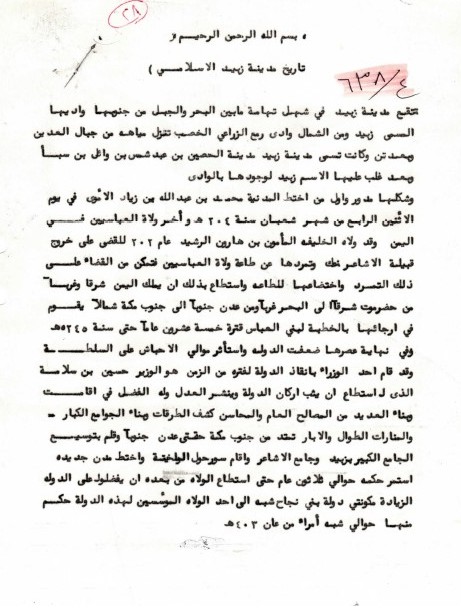 ٢٨
« بسم الله الرحمن الرحيم »
تاريخ مدينة زبيد الاسلامي )
٦٣٨/٤
تقع مدينة زبيد في سهل تهامة مابين البحر والجبل من جنوبها واديها
المسى زبيد ومن الشمال وادى رمع الزراعي الخصب تنزل مياهه من جبال العدين
وبعدتن وكانت تسى مدينة زبيد مدينة الحصين بن عبدشمس بن وائل بن سبأ
وبعد غلب عليها الاسم زبيد لوجودها بالوادى
وشكلها مدور واول من اختط المدنية محمد بن عبدالله بن زياد الأموى في يوم
الاثنين الرابع من شهر شعبان سنة ٢٠٤ هـ و أخر ولاة العباسيين فـــي
اليمن وقد ولاه الخليفه المأمون بن هارون الرشيد عام ٢٠٢ للقضى على خروج
قبيلة الاشاعر وتمردها عن طاعة ولاة العباسيين فتمكن من القضاء علــى
ذلك التمرد واخضاعها للطاعه واستطاع بذلك ان يملك اليمن شرقا وغربـا
من حضرموت شرقاً الى البحر غرباً ومن عدن جنوباً الى جنوب مكة شمالاً يقــوم
في ارجائها بالخطبة لبني العباس فترة خمسة عشرين عاماً حتى سنة ٢٤٥هـ
وفي نهاية عصرها ضعفت الدوله واستأثر موالي الاحباش على السلطـــة
وقد قام احد الوزراء بانقاذ الدولة لفتره من الزمن هو الوزير حسين بن سلامة
الذى لـ استطاع ان يثب اركان الدولة وينشر العدل وله الفضل في اقامـــت
وبناء العديد من المصالح العام والمحاسن كشف الطرقات وبناء الجوامع الكبار -
والمنارات الطوال والابار تمتد من جنوب مكة حتى عدن جنوباً وقام بتوسيــع
الجامع الكبير بزبيد وجامع الاشاعر واقام سور حول واختط مدن جديده
استمر حكمه حوالي ثلاثون عام حتى استطاع الولاه من بعده ان يفضلوا على الدوله
الزيادة مكونتي دولة بني نجاح شبه الى احد الولاه المؤسسين لهذه الدولة حكم
منها حوالي شبه أمراء من عان ٤٠٣هـ